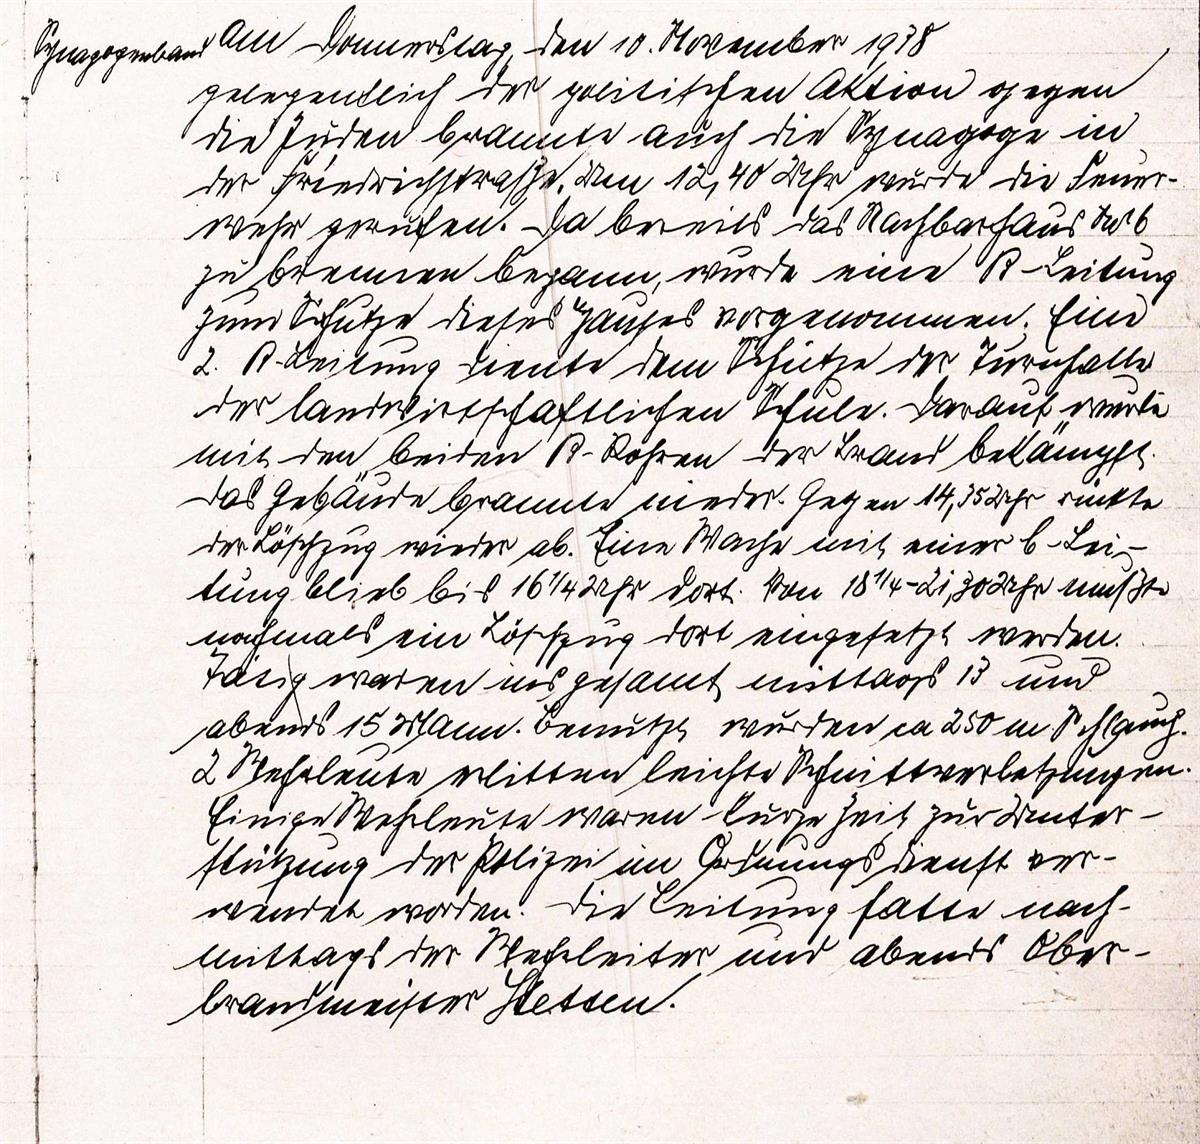 Synagogenbrand Am Donnerstag, den 10. November 1938
gelegentlich der politischen Aktion gegen
die Juden brannte auch die Synagoge in
der Friedrichstraße. Um 12,40 Uhr wurde die Feuer-
wehr gerufen. Da bereits das Nachbarhaus No 6
zu brennen begann, wurde eine B-Leitung
zum Schutze dieses Hauses vorgenommen. Eine
2. B-Leitung diente dem Schutze der Turnhalle
der landwirtschaftlichen Schule. Darauf wurde
mit den beiden B-Rohren der Brand bekämpft.
Das Gebäude brannte nieder. Gegen 14,35 Uhr rückte
der Löschzug wieder ab. Eine Wache mit einer C-Lei-
tung blieb bis 16 1/4 Uhr dort. Von 18 1/4 - 21,30 Uhr mußte
nochmals ein Löschzug dort eingesetzt werden.
Tätig waren insgesamt mittags 13 und
abends 15 Mann. Benutzt wurden ca 250 m Schlauch.
2 Wehrleute erlitten leichte Schnittverletzungen.
Einige Wehrleute waren kurze Zeit zur Unter-
stützung der Polizei im Ordnungsdienst ver-
wendet worden. Die Leitung hatte nach-
mittags der Wehrleiter und abends Ober-
brandmeister Stetten.